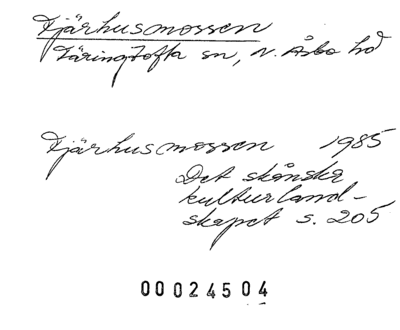 Fjärhusmossen
Färingtofta sn, N. Åsbo hd
Fjärhusmossen 1985
Det skånska
kulturland-
skapet s. 205
00024504